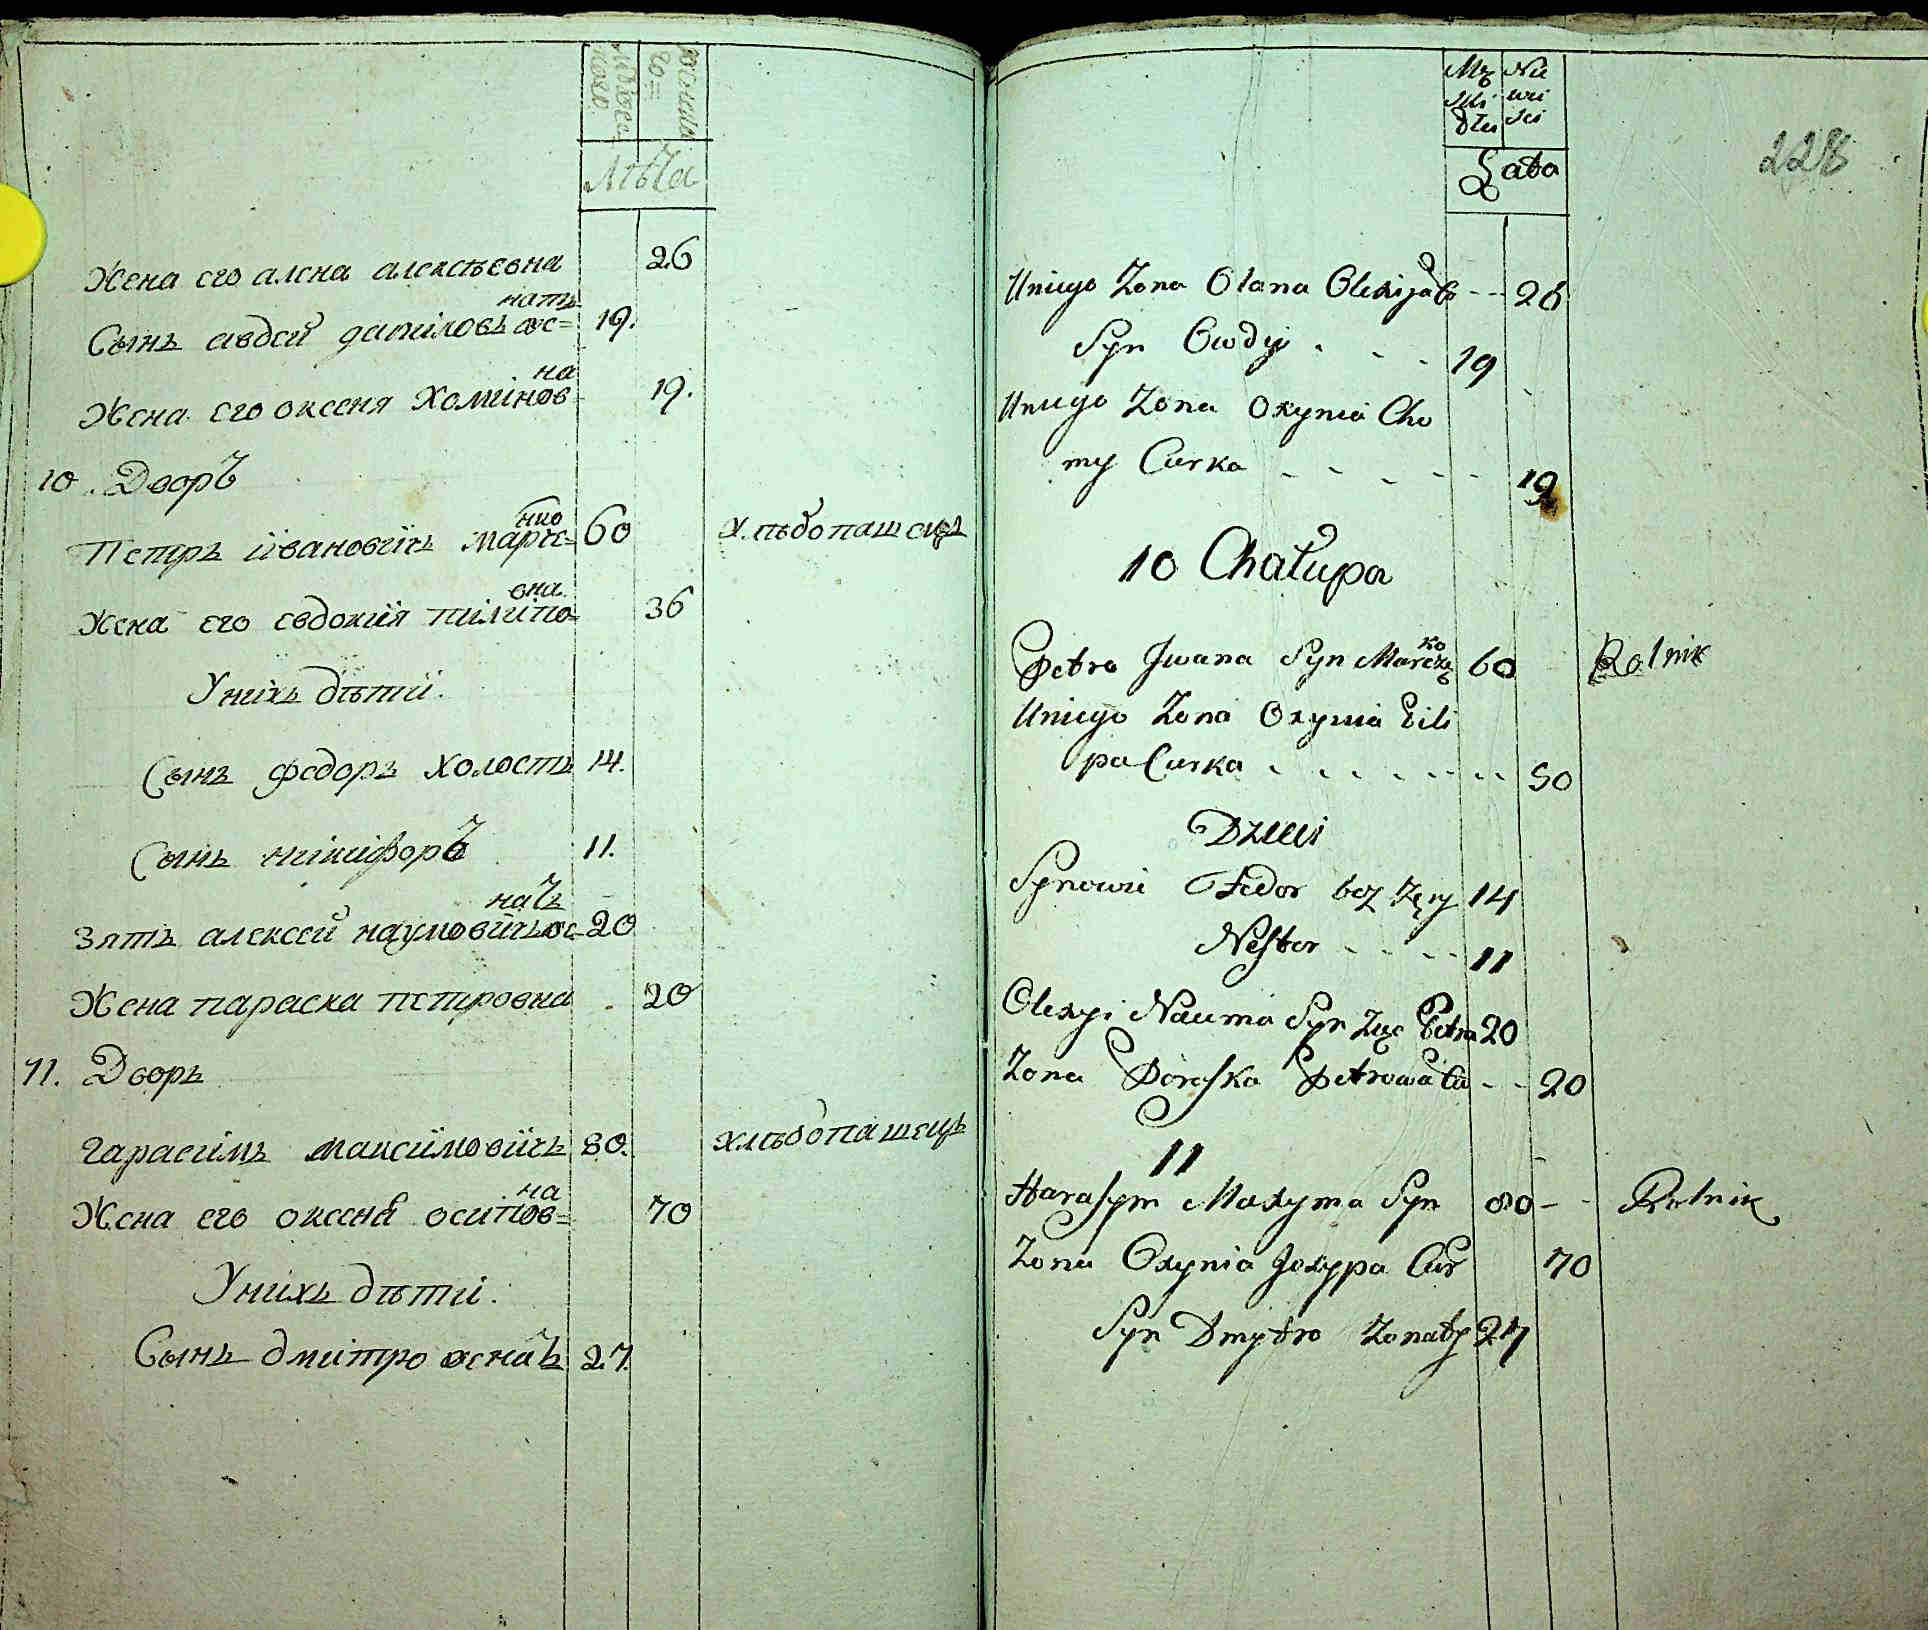 мужеска
пола
женска
го
Лѣта
Жена его алена алексѣевна 26
Сынъ авдей даниловъ женатъ 19.
Жена его оксеня Хоминовна 19.
10. Дворъ
Петръ ивановичъ Марченко 60 Хлѣбопашецъ
Жена его евдокия пилиповна 36
У нихъ дѣти.
Сынъ федоръ холостъ 14.
Сынъ никифоръ 11.
Зять алексей наумовичъ женатъ 20
Жена параска петровна 20
11. Дворъ
гарасимъ максимовичъ 80. хлѣбопашецъ
Жена его оксеня осиповна 70
У нихъ дѣти.
Сынъ дмитро женатъ 27.
228
Lata
Uniego Zona Olana 26
Syn Owdij 19
Uniego Zona Oxynia Cho
my Curka 19
10 Chałupa
Petro Jwana Syn Marczko 60 Rolnik
Uniego Zona Oxynia Pili
pa Curka 50
Dzieci
Synowie Fedor bez Zęny 14
Nestor 11
Olexyi Nauma Syn Zięc Petra 20
Zona Paraska Petrowa 20
11
Harasym Maxyma Syn 80 Rolnik
Zona Oxynia Joxyppa Cur 70
Syn Dmytro Zonaty 27